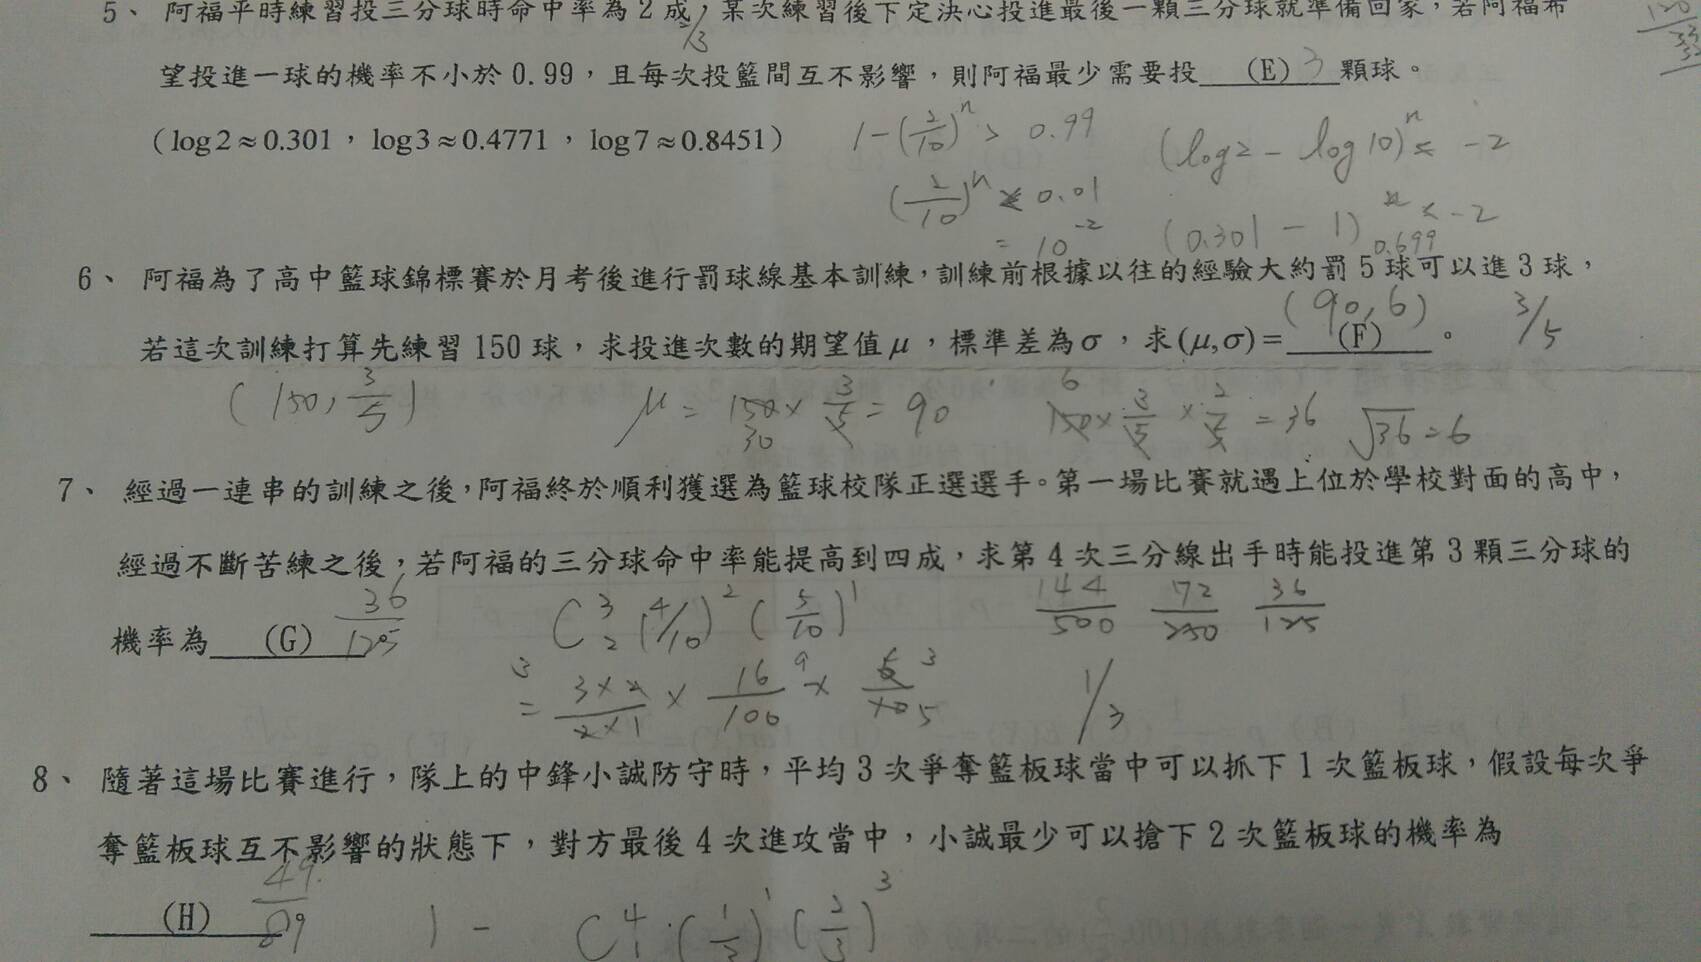 5、 阿福平時練習投三分球時命中率為2成，某次練習後下定決心投進最後一顆三分球就準備回家，若阿福希
望投進一球的機率不小於0.99，且每次投籃間互不影響，則阿福最少需要投 (E) 3 顆球。
(log2≈0.301，log3≈0.4771，log7≈0.8451)
1-(2/10)^n > 0.99
(log2 - log10)^n < -2
(2/10)^n < 0.01
= 10^-2
(0.301 - 1)^n < -2
0.699
6、 阿福為了高中籃球錦標賽於月考後進行罰球線基本訓練，訓練前根據以往的經驗大約罰5球可以進3球，
(90,6) 3/5
若這次訓練打算先練習150球，求投進次數的期望值μ，標準差為σ，求(μ,σ)= (F) 。
(150, 3/5) μ = 150 × 3/5 = 90 150 × 3/5 × 2/5 = 36 √36 = 6
30 6
7、 經過一連串的訓練之後，阿福終於順利獲選為籃球校隊正選選手。第一場比賽就遇上位於學校對面的高中，
經過不斷苦練之後，若阿福的三分球命中率能提高到四成，求第4次三分線出手時能投進第3顆三分球的
機率為 (G) 36/125 C^3_2 (4/10)^2 (5/10)^1 144/500 72/250 36/125
= 3×2/2×1 × 16/100 × 6/10 1/3
8、 隨著這場比賽進行，隊上的中鋒小誠防守時，平均3次爭奪籃板球當中可以抓下1次籃板球，假設每次爭
奪籃板球互不影響的狀態下，對方最後4次進攻當中，小誠最少可以搶下2次籃板球的機率為
(H) 49/89 1 - C^4_1 · (1/3)^1 (2/3)^3